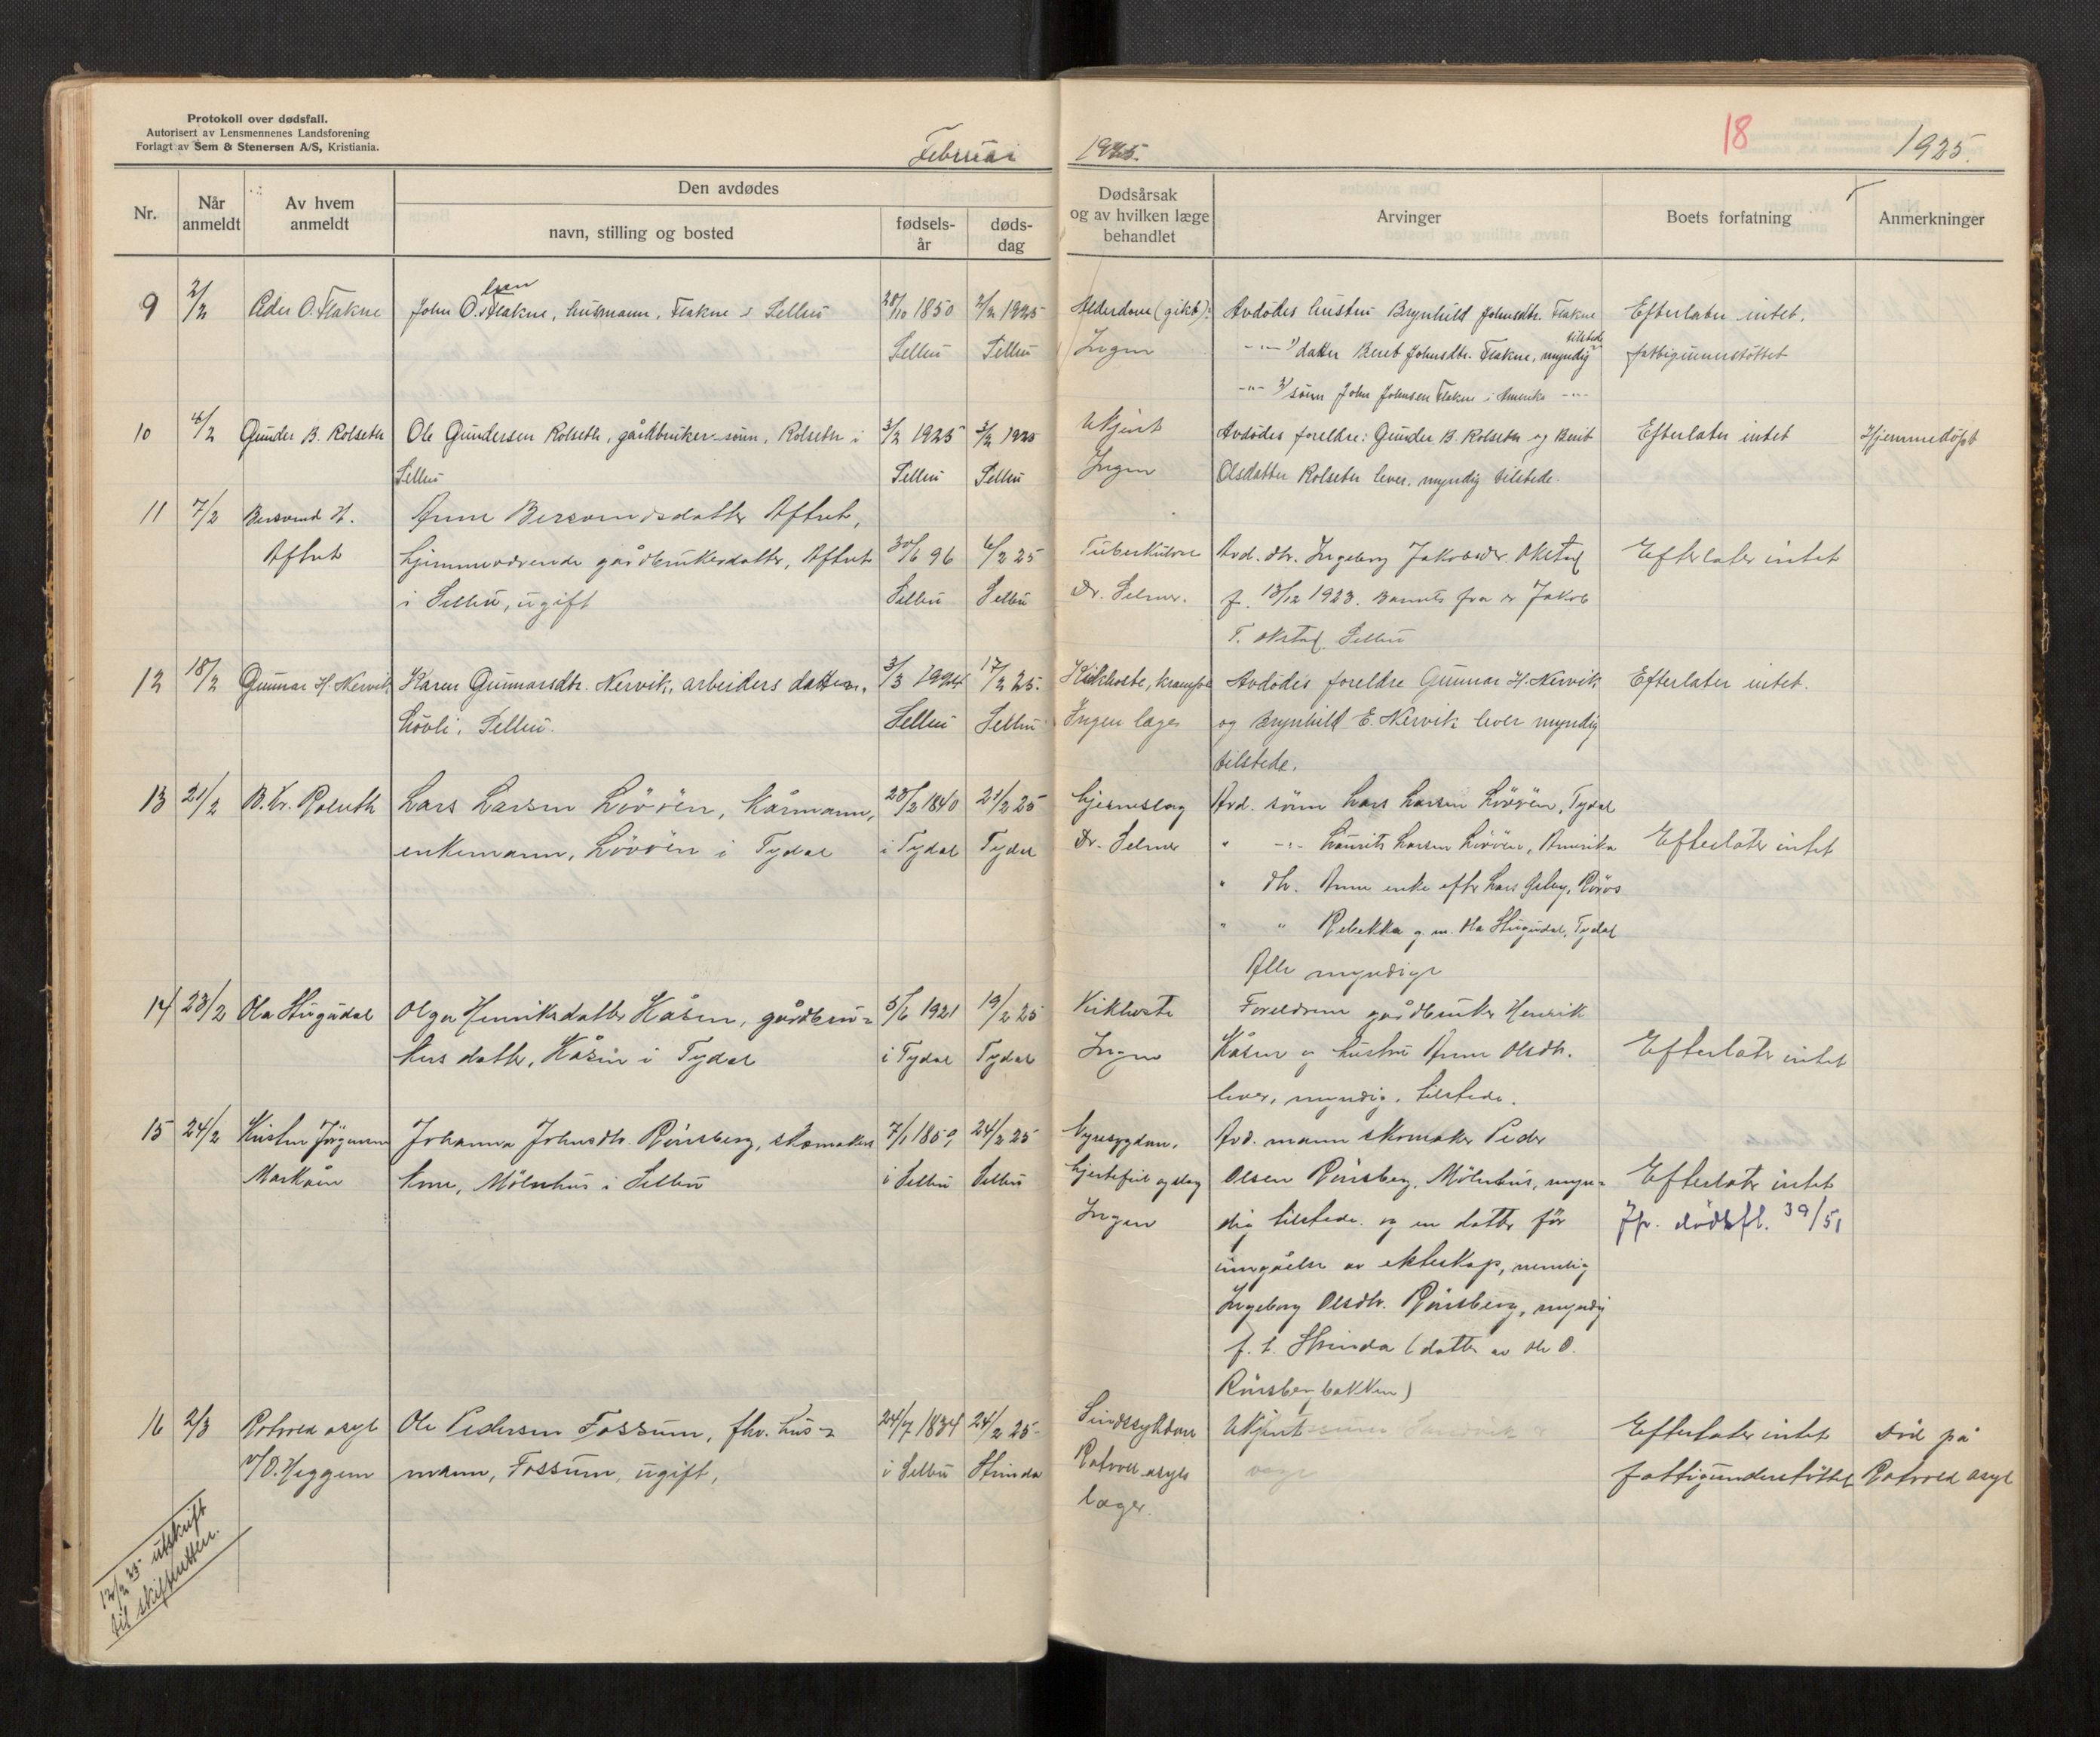 Protokoll over dødsfall.
Autorisert av Lensmennenes Landsforening
Forlagt av Sem & Stenersen A/S, Kristiania.
Februar 1925.
18
1925.
Nr.
Når anmeldt
Av hvem anmeldt
Den avdødes
navn, stilling og bosted
fødsels-år
døds-dag
Dødsårsak og av hvilken læge behandlet
Arvinger
Boets forfatning
Anmerkninger
9 2/2 Peder O. Flakne John Olsen Flakne, husmann, Flakne i Selbu 28/10 1850 2/2 1925 Alderdom (gikt): Avdødes hustru Brynhild Johnsdtr. Flakne Efterlater intet.
Selbu Selbu Ingen -"- 1) datter Beret Johnsdtr. Flakne, myndig tilstede fattigunnerstøttet
-"- 2) sønn John Johnsen Flakne i Amerika -"-
10 4/2 Gunder B. Rolseth Ole Gundersen Rolseth, gårdbruker-sønn, Rolseth i 3/2 1925 3/2 1925 Ukjent Avdødes foreldre: Gunder B. Rolseth og Berit Efterlater intet Hjemmedøpt
Selbu Selbu Selbu Ingen Olsdatter Rolseth lever, myndig tilstede.
11 7/2 Bersvend H. Anne Bersvendsdatter Aftret,
Aftret hjemmeværende gårdbrukerdatter, Aftret 30/6 96 6/2 25 Tuberkulose Avd. dtr. Ingeborg Jakobsdr. Okstad Efterlater intet
i Selbu, ugift Selbu Selbu Dr. Selmer. f. 13/12 1923. Barnets far er Jakob
T. Okstad, Selbu
12 18/2 Gunnar H. Nervik Karen Gunnarsdtr. Nervik, arbeiders datter, 3/3 1924 17/2 25. Kikhoste, krampe Avdødes foreldre Gunnar H. Nervik Efterlater intet.
Løvli, Selbu. Selbu Selbu Ingen læge og Brynhild E. Nervik lever myndig
tilstede.
13 21/2 B. Kr. Rolseth Lars Larsen Løvøen, kårmann, 23/2 1840 21/2 25 hjerneslag Avd. sønn Lars Larsen Løvøen, Tydal
enkemann, Løvøen i Tydal i Tydal Tydal Dr. Selmer " -"- Laurits Larsen Løvøen, Amerika Efterlater intet
" dtr. Anne enke efter Lars Galey, Røros
" " Rebekka g. m. Ola Stugudal, Tydal
Alle myndige
14 23/2 Ola Stugudal Olga Henriksdatter Kåsen, gårdbru= 5/6 1921 19/2 25 Kikhoste Foreldrene gårdbruker Henrik
kers datter, Kåsen i Tydal i Tydal Tydal Ingen Kåsen og hustru Anne Olsdtr. Efterlater intet
lever, myndig, tilstede.
15 24/2 Kristen Jørgensen Johanna Johnsdtr. Rønsberg, skomakers 7/1 1859 24/2 25 Nyresygdom, Avd. mann skomaker Peder
Markåen kone, Mølnhus i Selbu i Selbu Selbu hjertefeil og slag Olsen Rønsberg, Mølnhus, myn= Efterlater intet
Ingen dig tilstede og en datter før Jfr. dødsfl. 39/51
inngåelse av ekteskap, nemlig
Ingeborg Olsdtr. Rønsberg, myndig
f. t. Strinda (datter av Ole O.
Rønsbergbakken)
16 2/3 Rotvold asyl Ole Pedersen Fossum, fhv. hus= 24/7 1834 24/2 25 Sindssykdom Ukjent Efterlater intet Død på
v/ O. Heggem mann, Fossum, ugift, i Selbu Strinda Rotvoll asyls fattigunderstøttet Rotvold asyl
læger.
12/2 25 utskrift
til skifteretten.